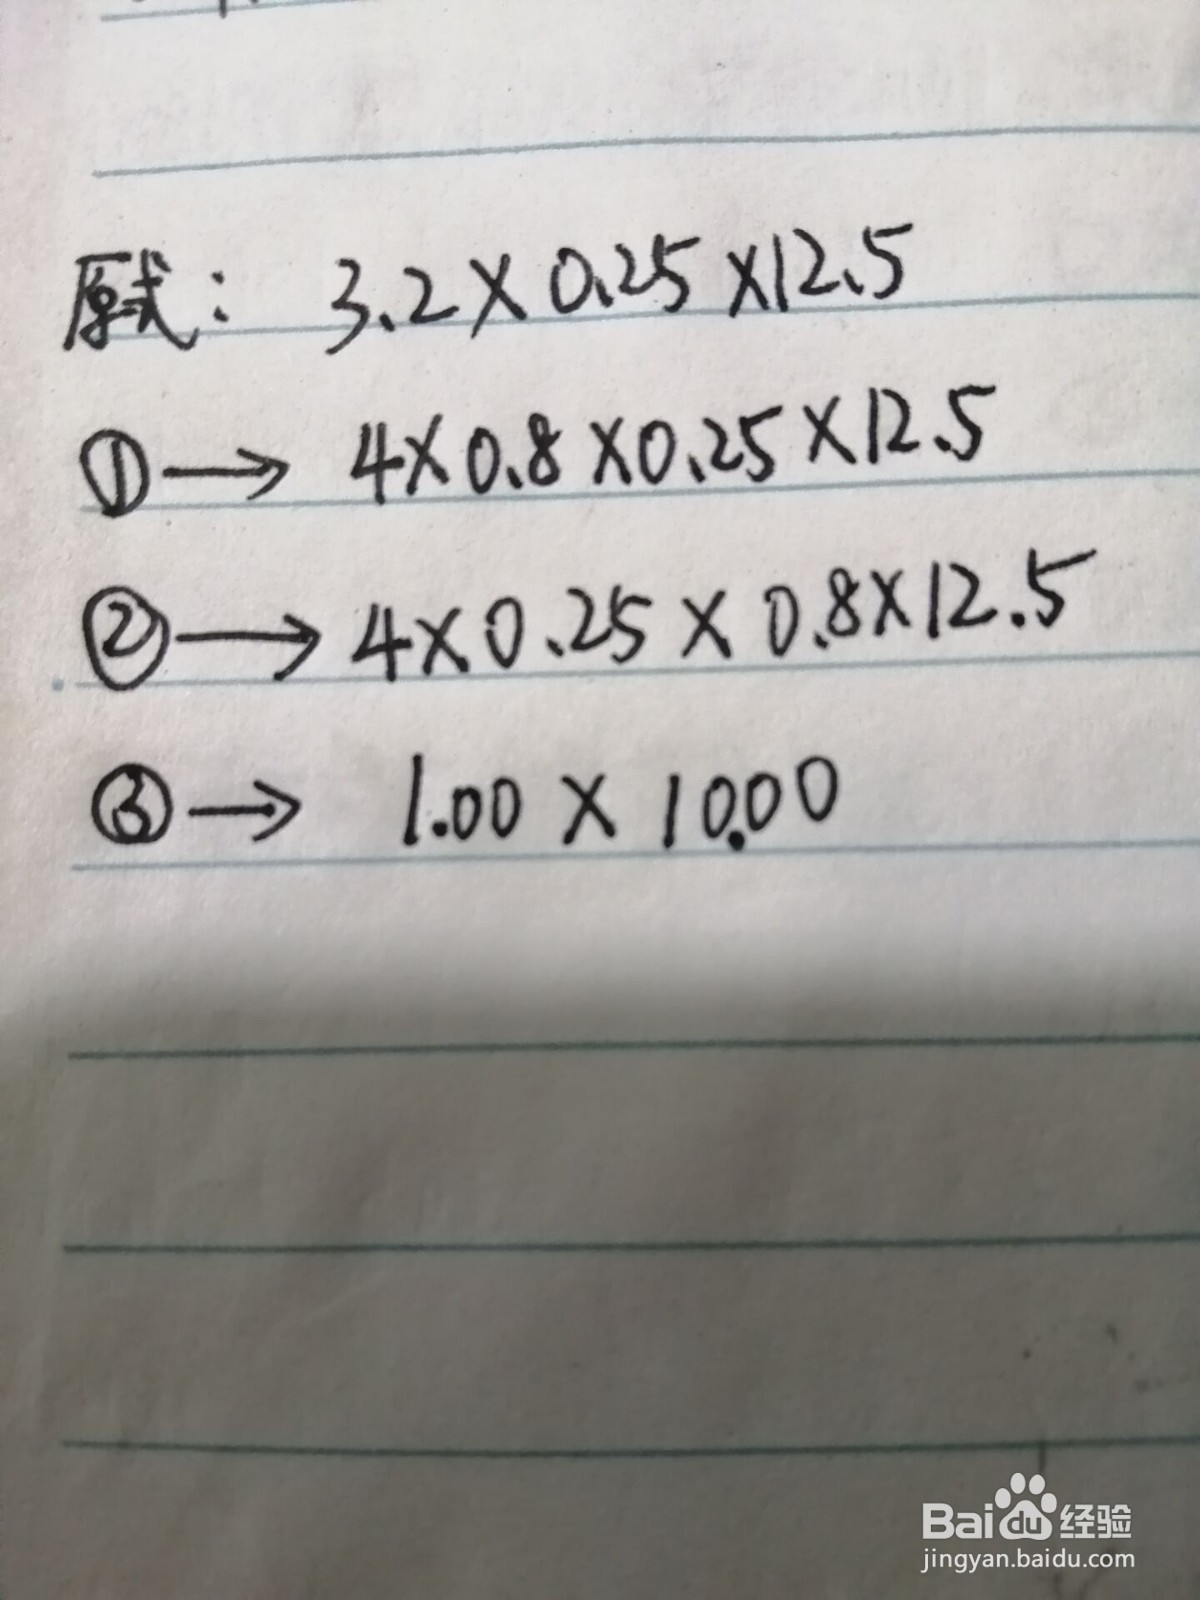 原式： 3.2×0.25×12.5
①→ 4×0.8×0.25×12.5
②→ 4×0.25×0.8×12.5
③→ 1.00×10.00
Baidu经验
jingyan.baidu.com